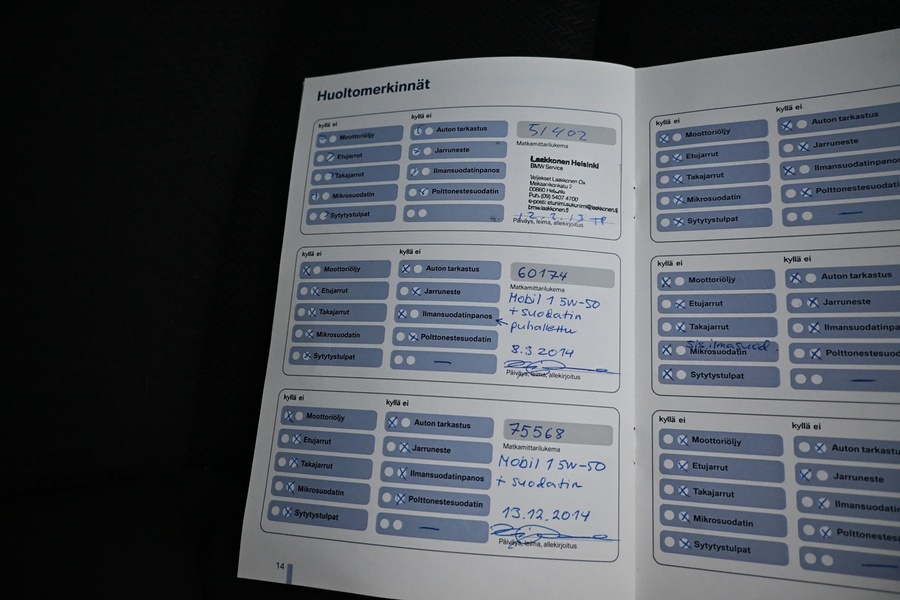 Huoltomerkinnät
kyllä ei
kyllä ei
Moottoriöljy
Auton tarkastus
Etujarrut
Jarruneste
Takajarrut
Ilmansuodatinpanos
Mikrosuodatin
Polttonestesuodatin
Sytytystulpat
51402
Matkamittarilukema
Laakkonen Helsinki
BMW Service
Veljekset Laakkonen Oy
Mekaanikonkatu 2
00880 Helsinki
Puh. (09) 5407 4700
bmw.laakkonen.fi
12.2.13
Päiväys, leima, allekirjoitus
kyllä ei
kyllä ei
Moottoriöljy
Auton tarkastus
Etujarrut
Jarruneste
Takajarrut
Ilmansuodatinpanos
Mikrosuodatin
Polttonestesuodatin
Sytytystulpat
—
60174
Matkamittarilukema
Mobil 1 5W-50
+ suodatin
puhallettu
8.3.2014
Päiväys, leima, allekirjoitus
kyllä ei
kyllä ei
Moottoriöljy
Auton tarkastus
Etujarrut
Jarruneste
Takajarrut
Ilmansuodatinpanos
Mikrosuodatin
Polttonestesuodatin
Sytytystulpat
—
75568
Matkamittarilukema
Mobil 1 5W-50
+ suodatin
13.12.2014
Päiväys, leima, allekirjoitus
14
kyllä ei
kyllä ei
Moottoriöljy
Auton tarkastus
Etujarrut
Jarruneste
Takajarrut
Ilmansuodatinpanos
Mikrosuodatin
Polttonestesuodatin
Sytytystulpat
—
kyllä ei
kyllä ei
Moottoriöljy
Auton tarkastus
Etujarrut
Jarruneste
Takajarrut
Ilmansuodatinpa
sisilmasuod.
Mikrosuodatin
Polttonestesuod
Sytytystulpat
—
kyllä ei
kyllä ei
Moottoriöljy
Auton tarkastus
Etujarrut
Jarruneste
Takajarrut
Ilmansuodatinp
Mikrosuodatin
Polttonestesu
Sytytystulpat
—